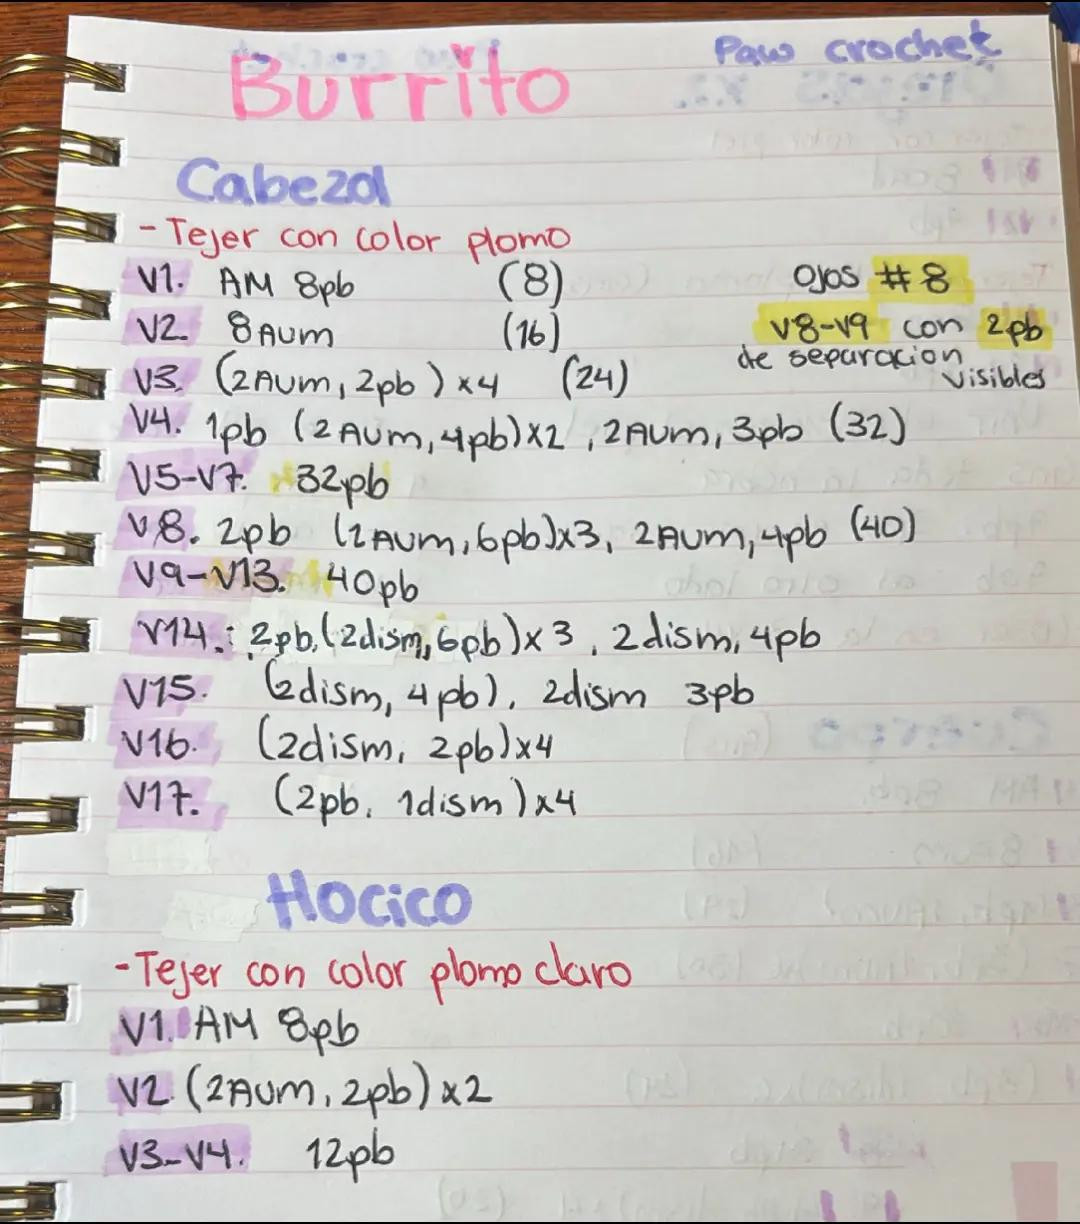 Paw crochet
Burrito
Cabeza
- Tejer con color plomo
V1. AM 8pb (8)
V2. 8 Aum (16)
V3. (2Aum, 2pb) x4 (24)
V4. 1pb (2 Aum, 4pb)x2, 2Aum, 3pb (32)
V5-V7. 32pb
V8. 2pb (2Aum, 6pb)x3, 2Aum, 4pb (40)
V9-V13. 40pb
V14.: 2pb, (2dism, 6pb)x3, 2dism, 4pb
V15. (2dism, 4pb), 2dism 3pb
V16. (2dism, 2pb)x4
V17. (2pb, 1dism)x4
Ojos #8
V8-V9 con 2pb
de separacion
visibles
Hocico
- Tejer con color plomo claro
V1. AM 8pb
V2. (2Aum, 2pb) x2
V3-V4. 12pb